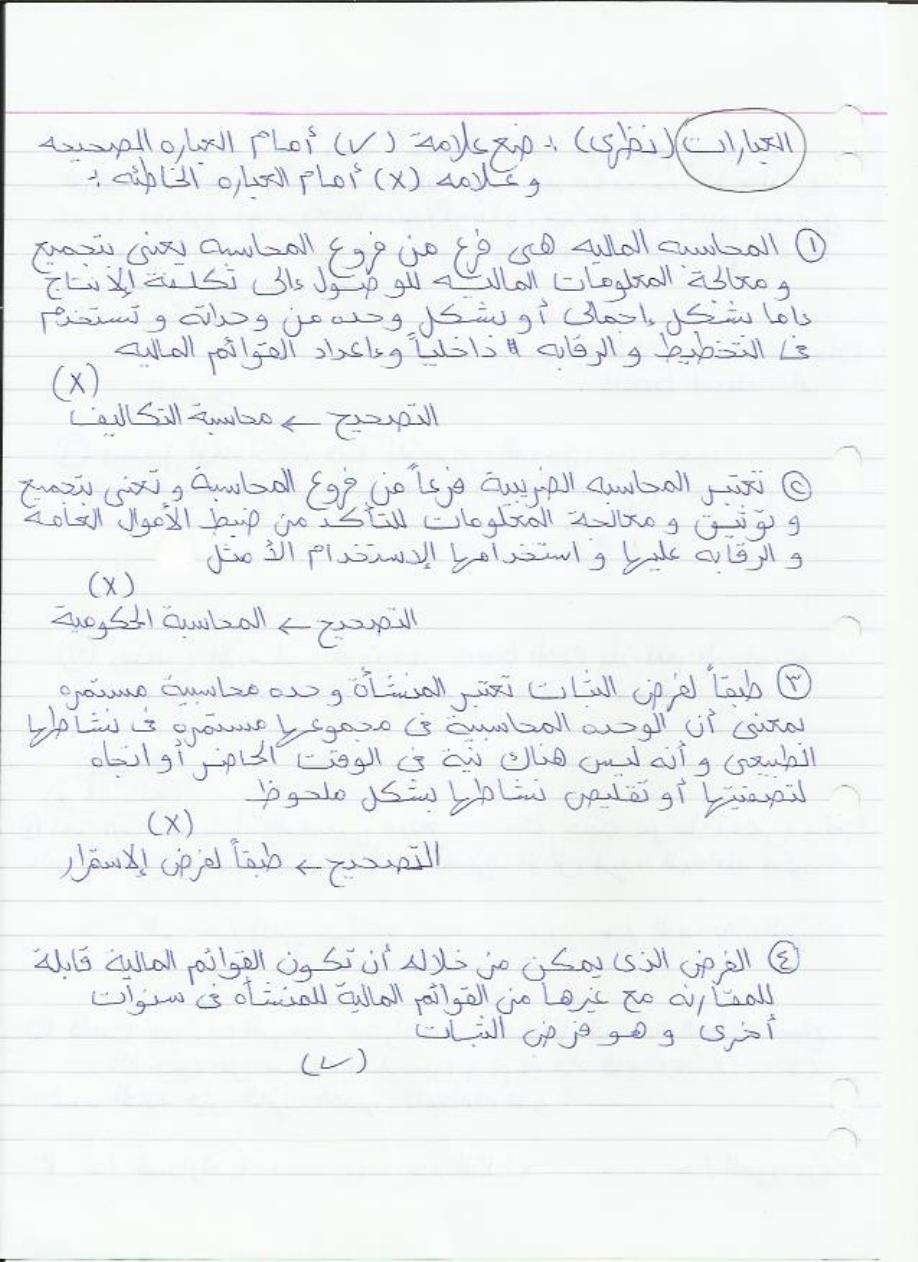 العبارات (نظرى) : ضع علامة (√) أمام العباره الصحيحه
وعلامه (X) أمام العباره الخاطئه :
① المحاسبه الماليه هى فرع من فروع المحاسبه يعنى بتجميع
و معالجة المعلومات الماليه للوصول إلى تكلفة الإنتاج
إما بشكل إجمالى أو بشكل وحده من وحداته و تستخدم
فى التخطيط و الرقابه داخلياً وإعداد القوائم الماليه
(X)
التصحيح ← محاسبة التكاليف
② تعتبر المحاسبه الضريبية فرعاً من فروع المحاسبة و تعنى بتجميع
و توثيق و معالجة المعلومات للتأكد من ضبط الأموال العامة
و الرقابه عليها و استخدامها الإستخدام الأمثل
(X)
التصحيح ← المحاسبة الحكومية
③ طبقاً لفرض الثبات تعتبر المنشأة وحده محاسبية مستمره
بمعنى أن الوحده المحاسبية فى مجموعها مستمره فى نشاطها
الطبيعى و أنه ليس هناك نية فى الوقت الحاضر أو اتجاه
لتصفيتها أو تقليص نشاطها بشكل ملحوظ
(X)
التصحيح ← طبقاً لفرض الإستقرار
④ الفرض الذى يمكن من خلاله أن تكون القوائم المالية قابلة
للمقارنه مع غيرها من القوائم المالية للمنشأه فى سنوات
أخرى و هو فرض الثبات
(√)